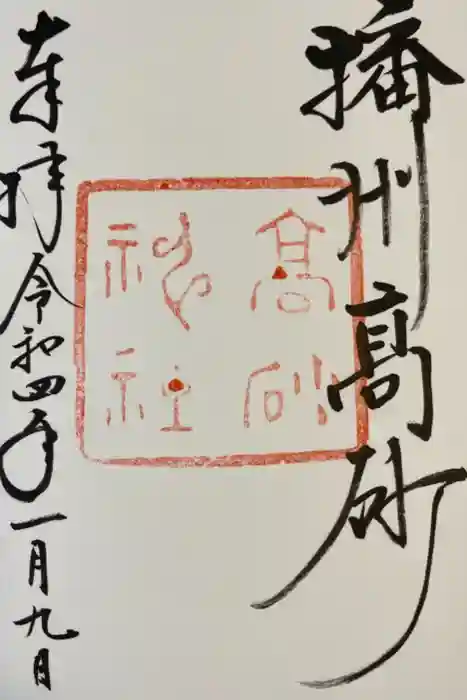 播州高砂
高砂
神社
奉拝令和四年一月九日